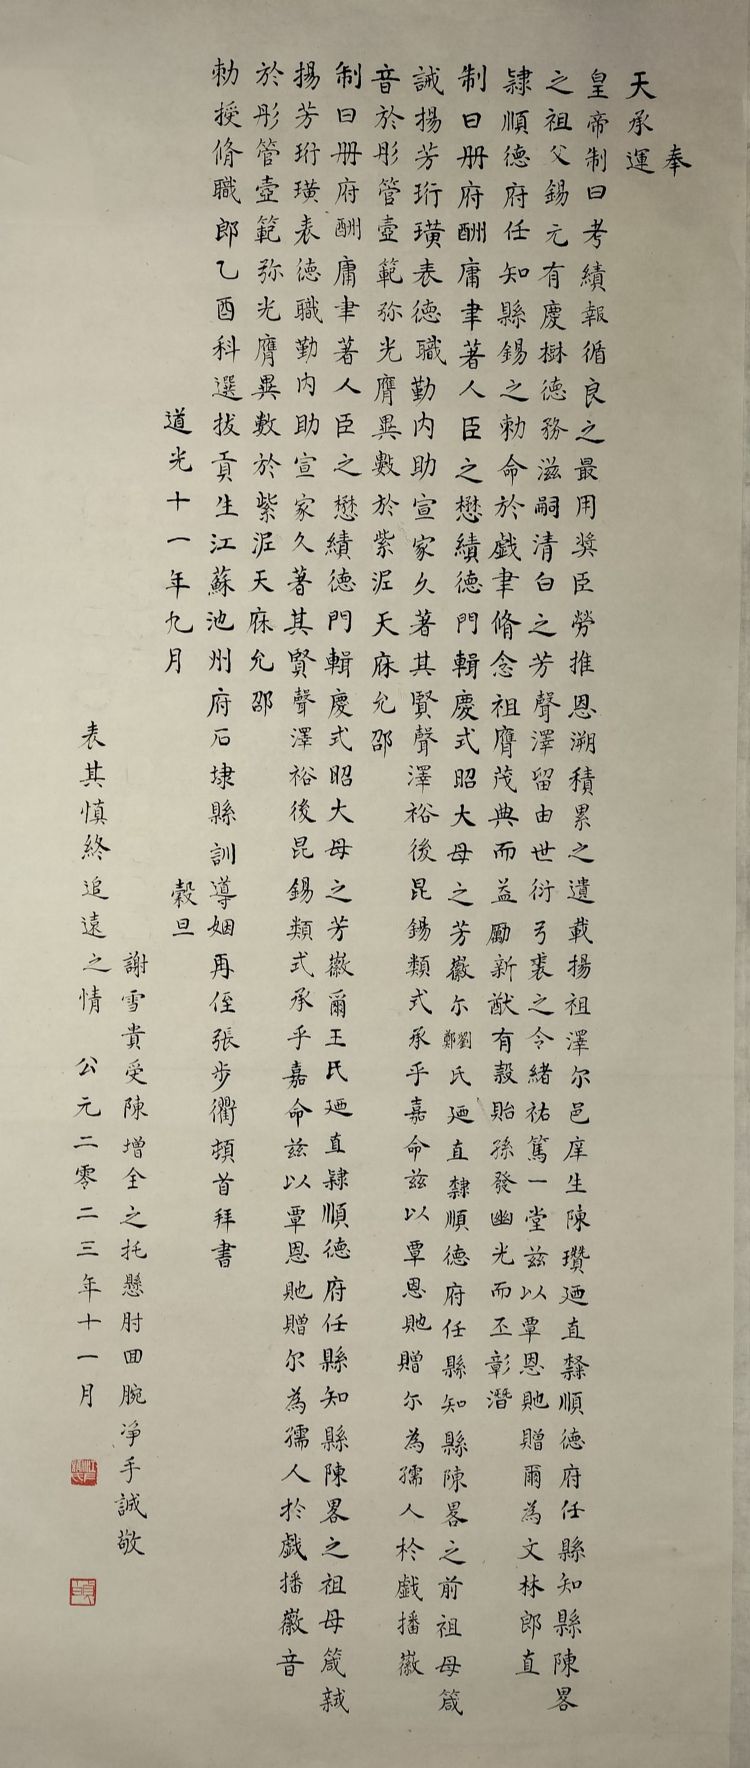 奉
天承運
皇帝制曰考績報循良之最用奨臣勞推恩溯積累之遺載揚祖澤尔邑庠生陳瓚廼直隸順德府任縣知縣陳畧
之祖父錫元有慶樹德務滋嗣清白之芳聲澤留由世衍弓裘之令緒祐篤一堂兹以覃恩貤贈爾為文林郎直
隸順德府任知縣錫之勅命於戲聿脩念祖膺茂典而益勵新猷有穀貽孫發幽光而丕彰潛
制曰册府酬庸聿著人臣之懋績德門輯慶式昭大母之芳徽尔劉鄭氏廼直隸順德府任縣知縣陳畧之前祖母箴
誡揚芳珩璜表德職勤内助宣家久著其賢聲澤裕後昆錫類式承乎嘉命兹以覃恩貤贈尔為孺人於戲播徽
音於彤管壼範弥光膺異數於紫泥天庥允邵
制曰册府酬庸聿著人臣之懋績德門輯慶式昭大母之芳徽爾王氏廼直隸順德府任縣知縣陳畧之祖母箴誡
揚芳珩璜表德職勤内助宣家久著其賢聲澤裕後昆錫類式承乎嘉命兹以覃恩貤贈尔為孺人於戲播徽音
於彤管壼範弥光膺異數於紫泥天庥允邵
勅授脩職郎乙酉科選拔貢生江蘇池州府石埭縣訓導姻再侄張步衢頓首拜書
道光十一年九月 穀旦
謝雪貴受陳增全之托懸肘回腕净手誠敬
表其慎終追遠之情 公元二零二三年十一月